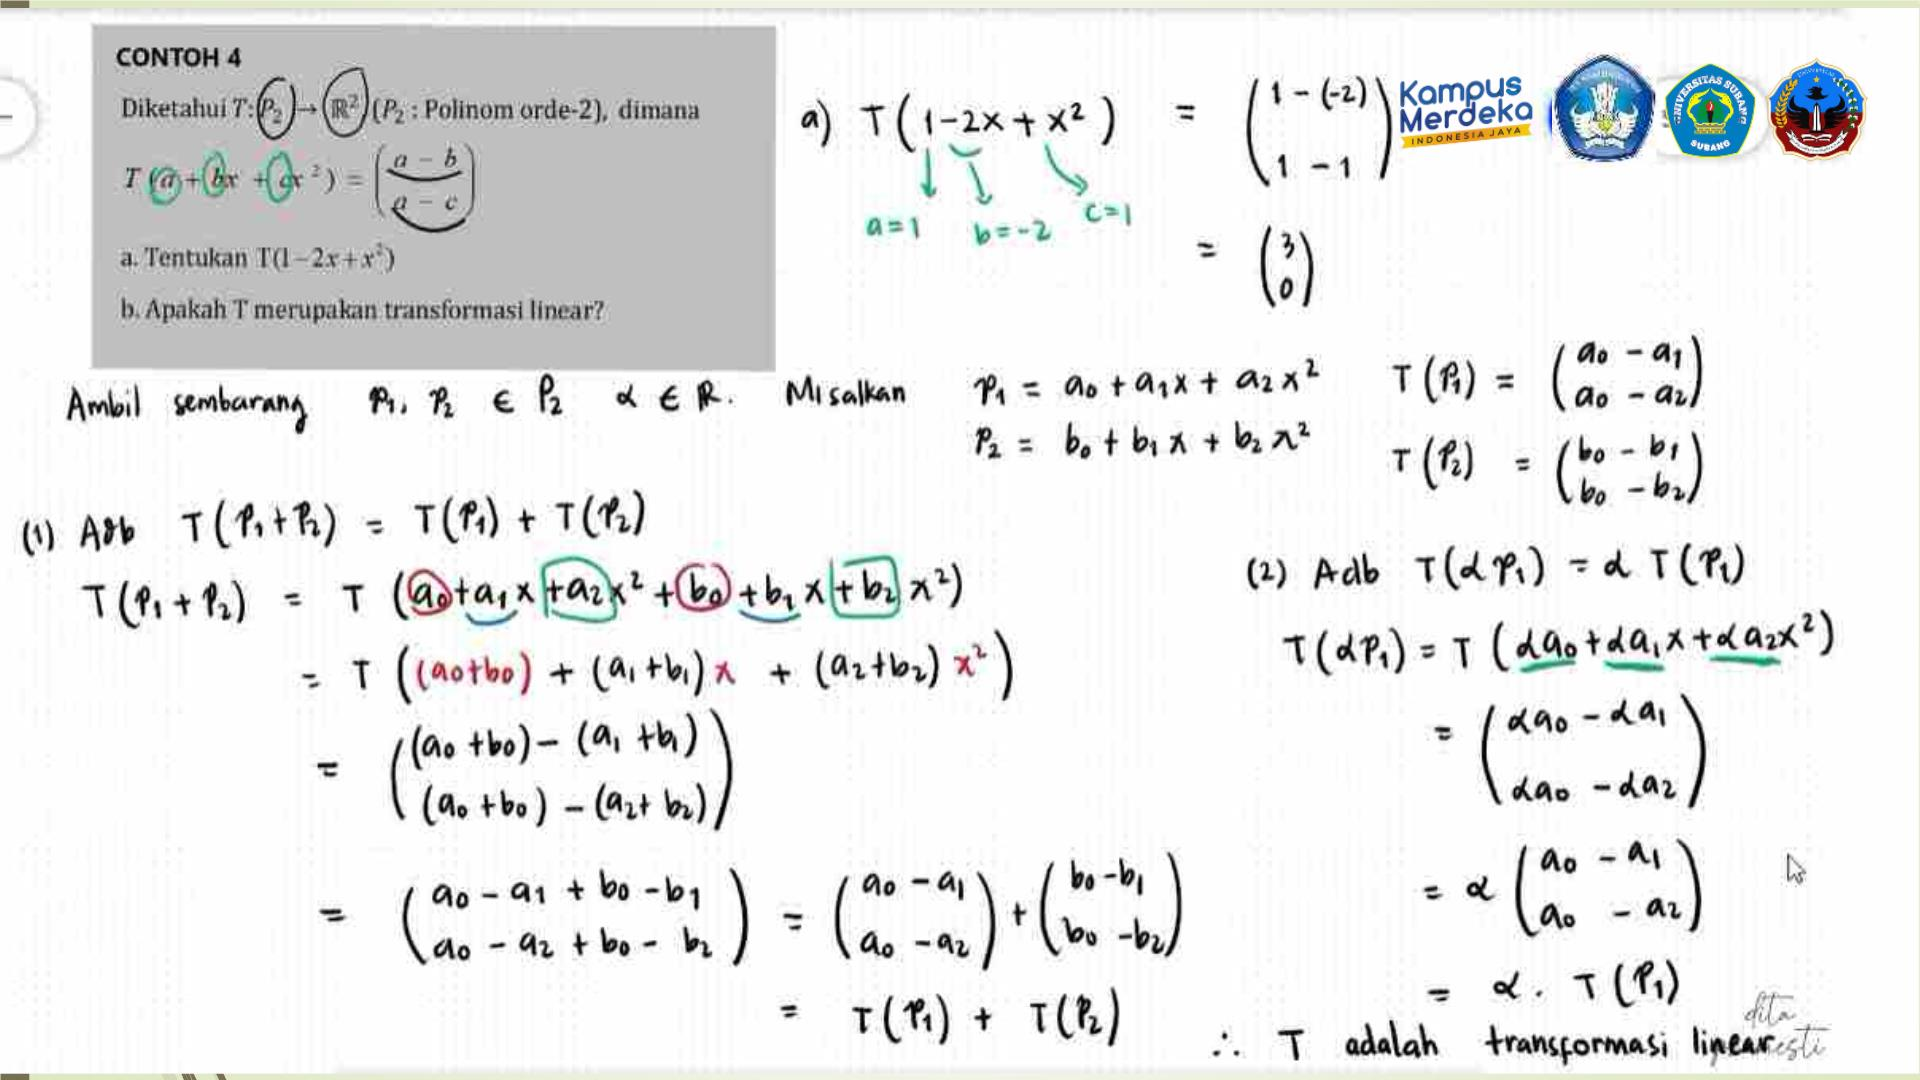 CONTOH 4
Diketahui T: P₂ → ℝ² (P₂ : Polinom orde-2), dimana
T (a + bx + cx²) = (a − b
a − c)
a. Tentukan T(1−2x+x²)
b. Apakah T merupakan transformasi linear?
a) T(1−2x + x²) = (1 − (−2)
1 − 1)
a=1 b=−2 c=1
= (3
0)
Kampus
Merdeka
INDONESIA JAYA
UNIVERSITAS SUBANG
SUBANG
Ambil sembarang p₁, p₂ ∈ P₂ α ∈ R. Misalkan p₁ = a₀ + a₁x + a₂x² T(p₁) = (a₀ − a₁
a₀ − a₂)
p₂ = b₀ + b₁x + b₂x² T(p₂) = (b₀ − b₁
b₀ − b₂)
(1) Adb T(p₁+p₂) = T(p₁) + T(p₂)
T(p₁ + p₂) = T (a₀+a₁x+a₂x² + b₀ +b₁x + b₂x²)
= T ((a₀+b₀) + (a₁+b₁)x + (a₂+b₂)x²)
= ((a₀+b₀) − (a₁+b₁)
(a₀+b₀) − (a₂+b₂))
= (a₀ − a₁ + b₀ − b₁
a₀ − a₂ + b₀ − b₂) = (a₀ − a₁
a₀ − a₂) + (b₀ − b₁
b₀ − b₂)
= T(p₁) + T(p₂)
(2) Adb T(αp₁) = α T(p₁)
T(αp₁) = T (αa₀+αa₁x+αa₂x²)
= (αa₀ − αa₁
αa₀ − αa₂)
= α (a₀ − a₁
a₀ − a₂)
= α . T(p₁)
∴ T adalah transformasi linear
dita